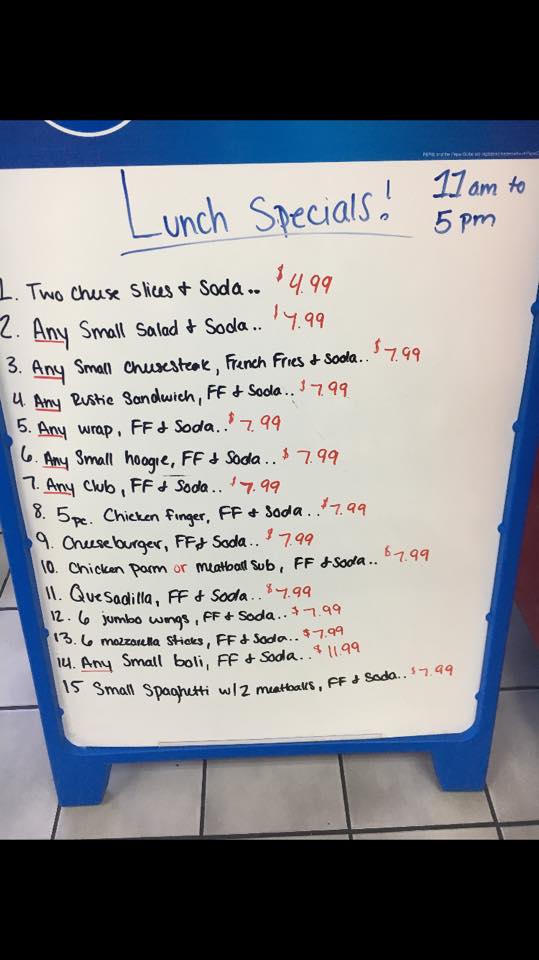 Lunch Specials!
11am to
5pm
1. Two Cheese Slices & Soda.. $4.99
2. Any Small Salad & Soda.. $7.99
3. Any Small Cheesesteak, French Fries & Soda.. $7.99
4. Any Rustic Sandwich, FF & Soda.. $7.99
5. Any wrap, FF & Soda.. $7.99
6. Any Small hoagie, FF & Soda.. $7.99
7. Any Club, FF & Soda.. $7.99
8. 5pc. Chicken Finger, FF & Soda.. $7.99
9. Cheeseburger, FF & Soda.. $7.99
10. Chicken parm or meatball Sub, FF & Soda.. $7.99
11. Quesadilla, FF & Soda.. $7.99
12. 6 jumbo wings, FF & Soda.. $7.99
13. 6 mozzarella Sticks, FF & Soda.. $7.99
14. Any Small boli, FF & Soda.. $11.99
15 Small Spaghetti w/2 meatballs, FF & Soda.. $7.99